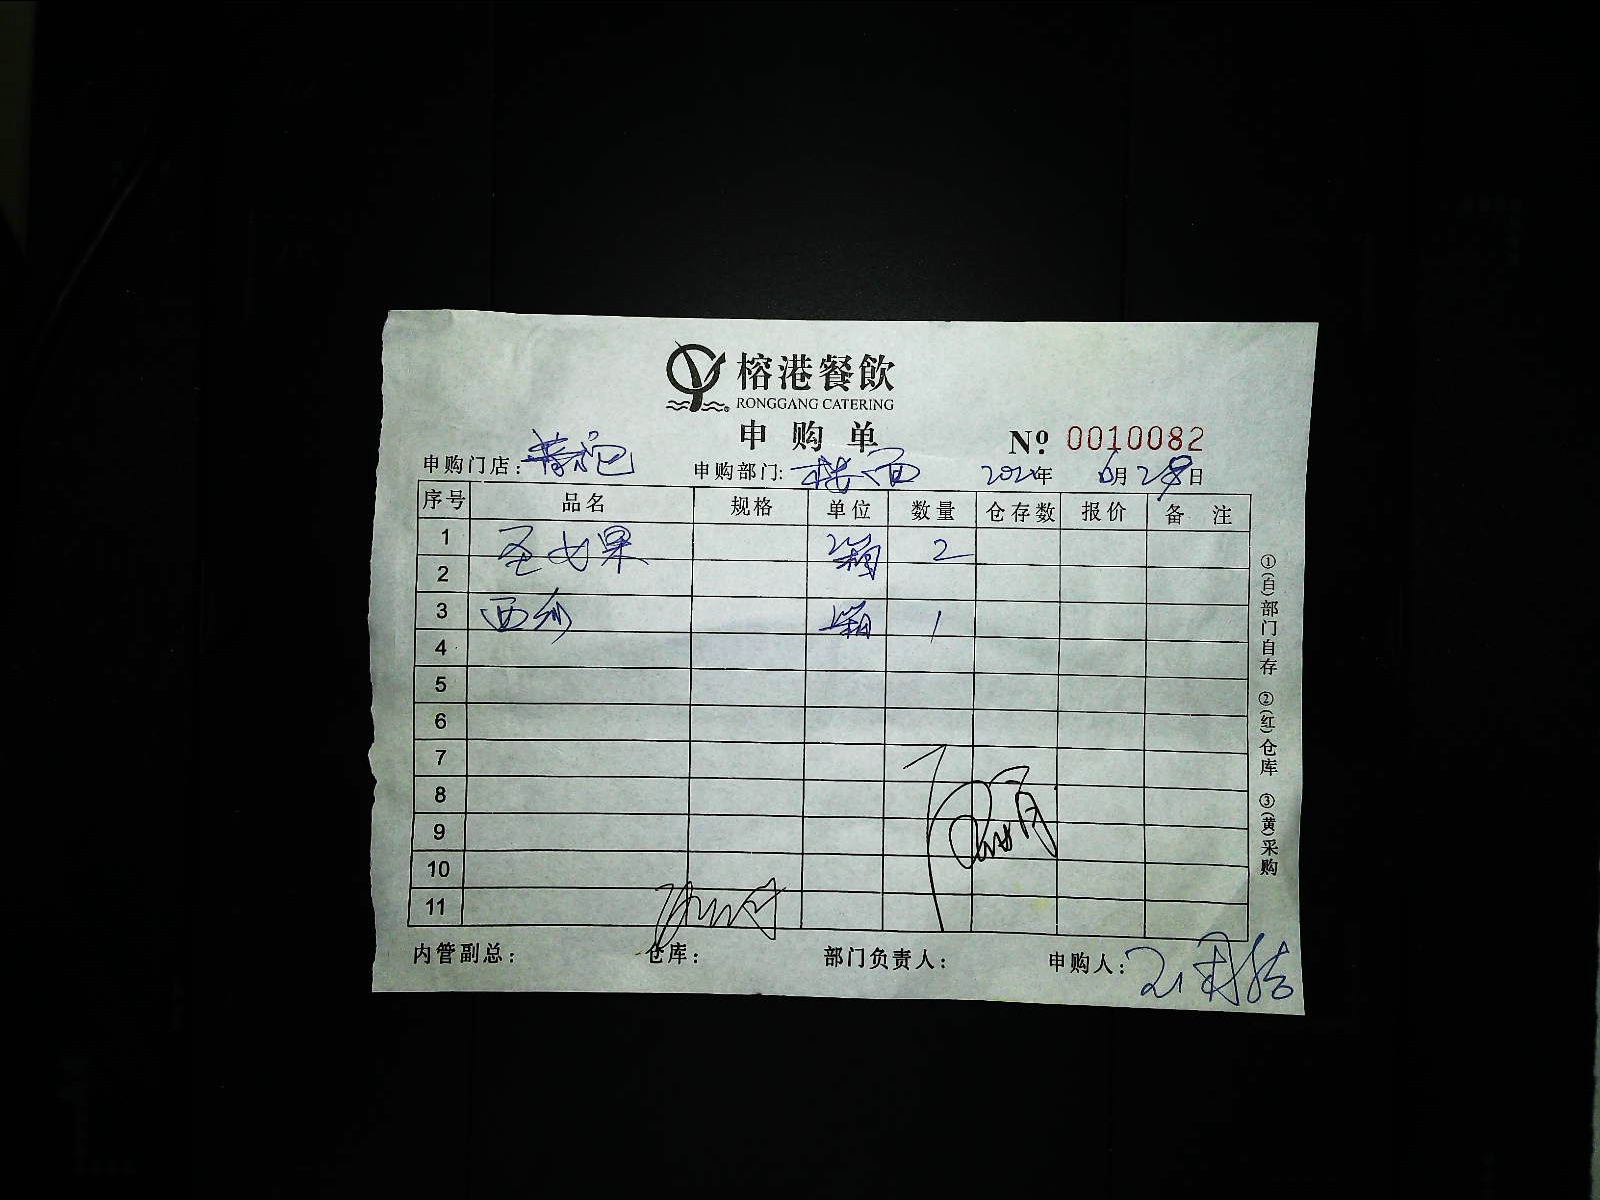 榕港餐飲
RONGGANG CATERING
申购单
№ 0010082
申购门店: 申购部门: 楼面 年 6月28日
序号 品名 规格 单位 数量 仓存数 报价 备注
1 圣女果 箱 2
2
3 西 箱 1
4
5
6
7
8
9
10
11
内管副总: 仓库: 部门负责人: 申购人:
①(白)部门自存 ②(红)仓库 ③(黄)采购